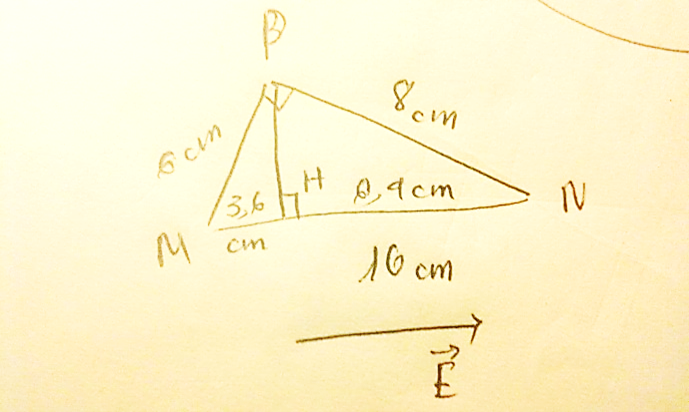 B
8 cm
6 cm
3,6
H
6,4 cm
N
M
cm
10 cm
E